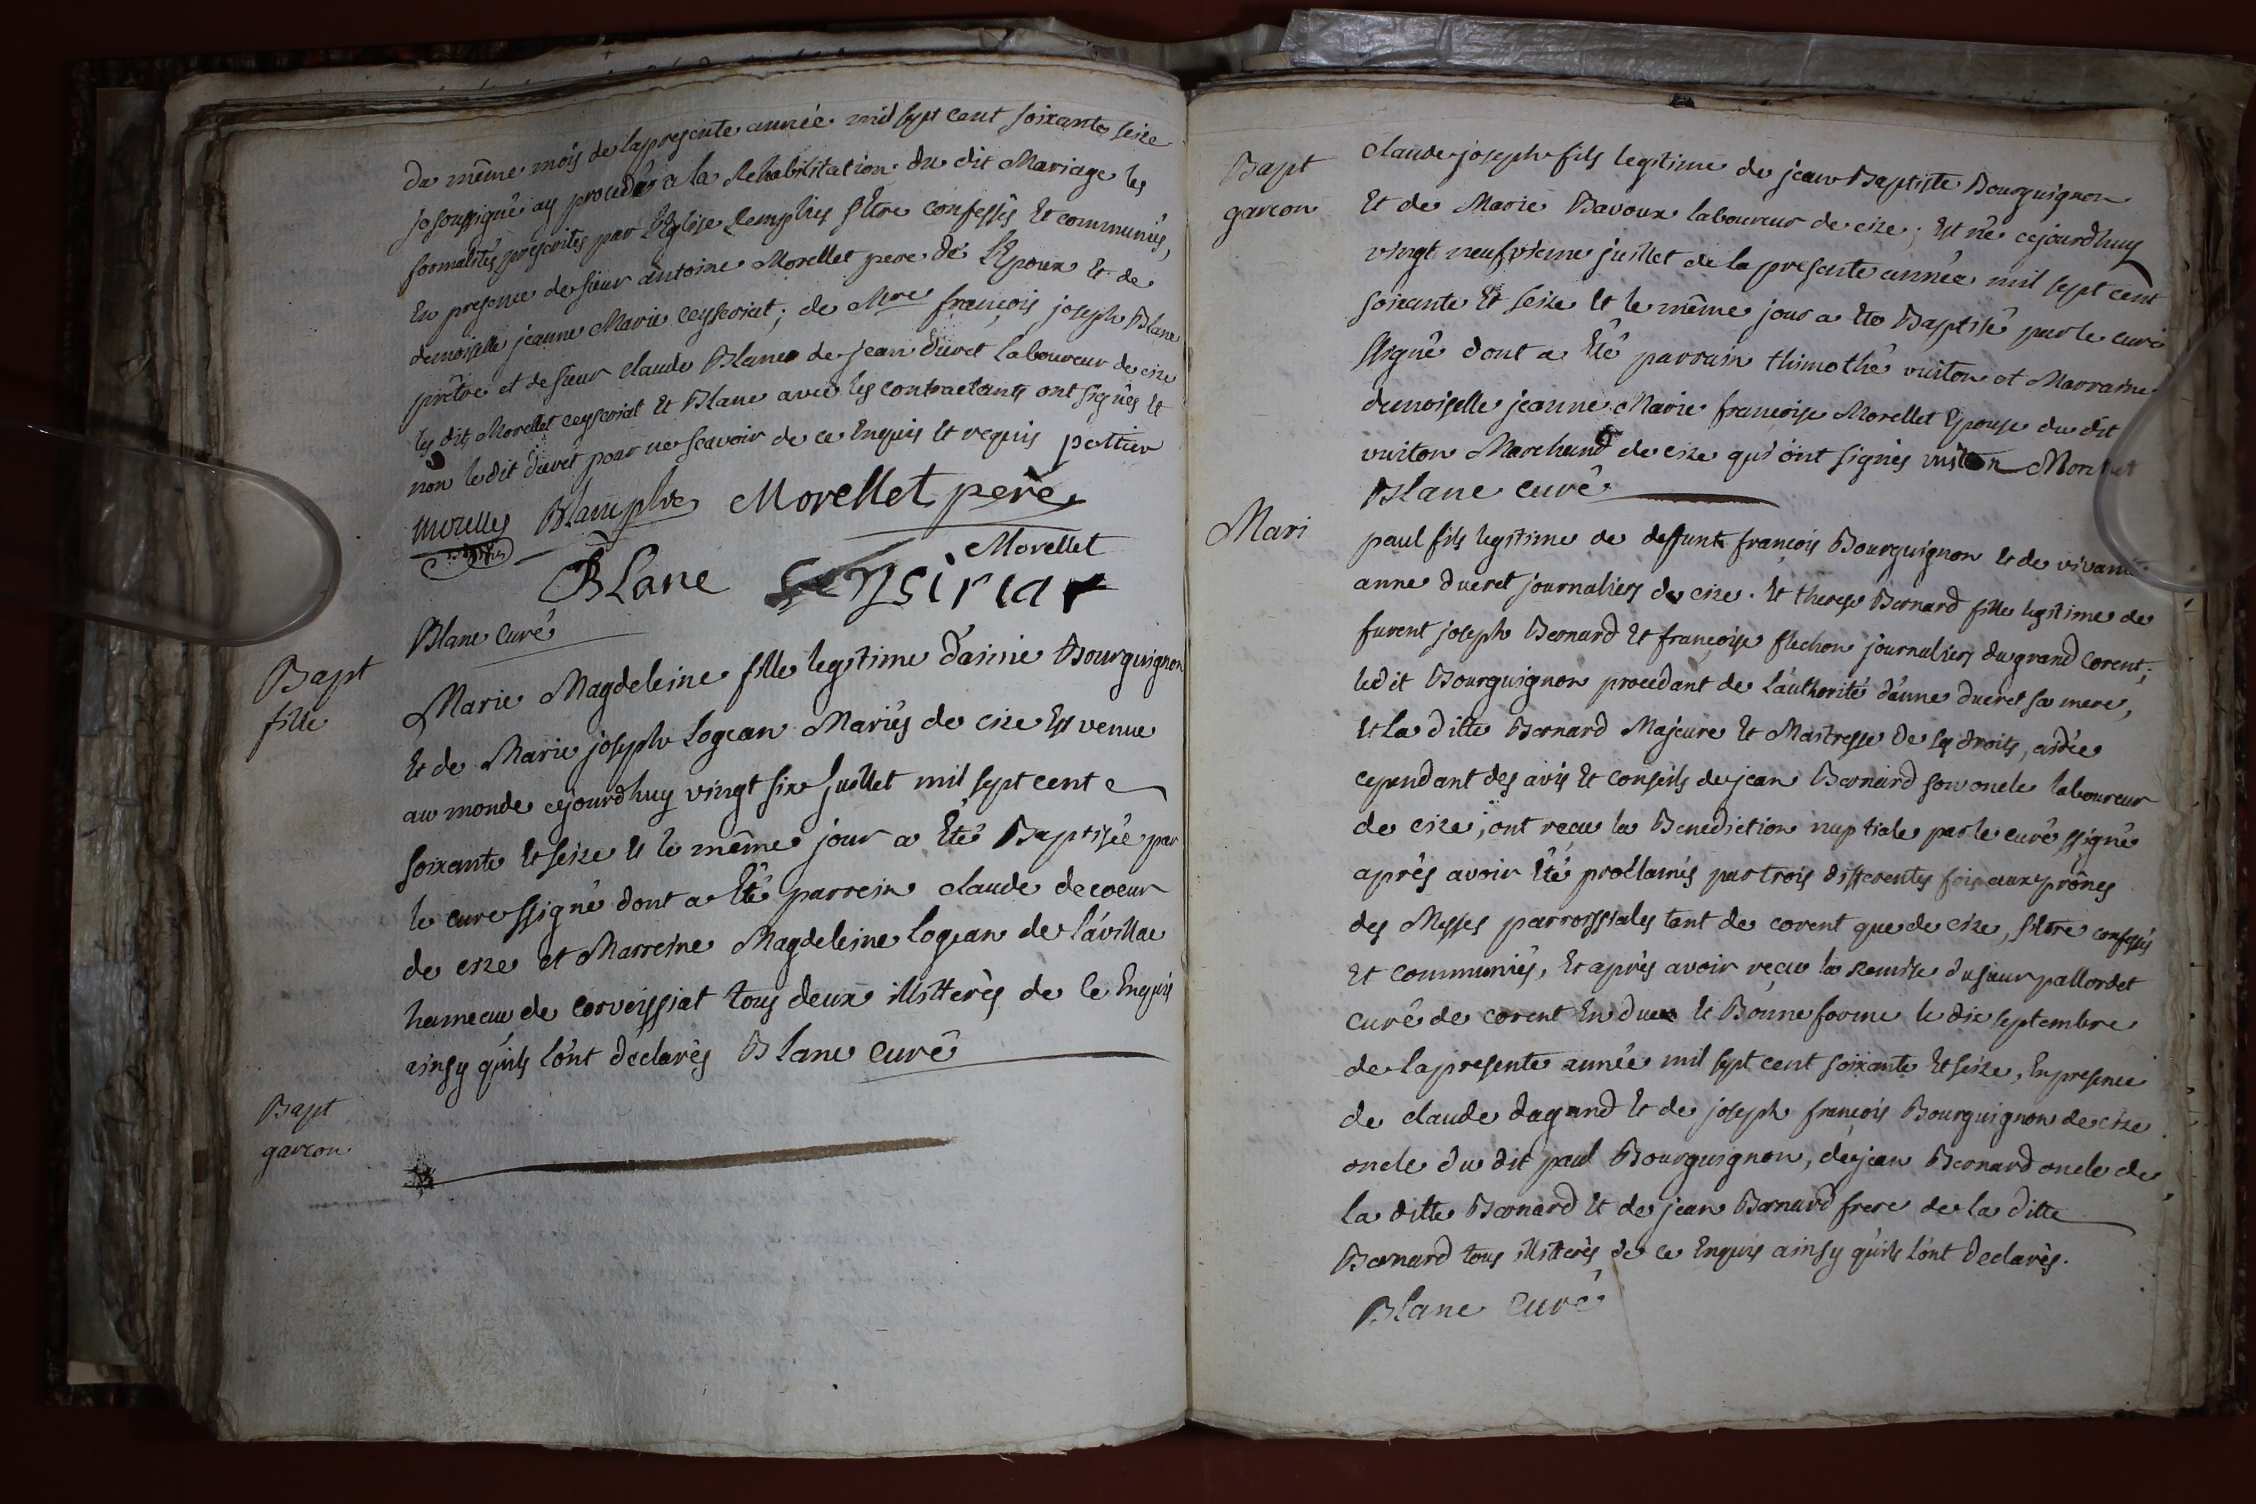 du même mois de la presente année mil sept cent soixante seize
je soussigné ay procedé a la Rehabilitation du dit Mariage les
formalités prescrites par l'Eglise Remplies s'Etre confessés Et communiés,
En presence de sieur antoine Morellet pere de l'Epoux Et de
demoiselle jeanne Marie ceyseriat; de Mre françois joseph Blanc
prêtre et de sieur claude Blanc de jean duret Laboureur de cize
les dits Morellet ceyseriat Et Blanc avec les contractants ont signés Et
non le dit duret pour ne scavoir de ce Enquis Et requis
Blanc ptre Morellet pere
Morellet
Blanc
Blanc Curé
Bapt
fille
Marie Magdeleine fille legitime d'aimé Bourguignon
Et de Marie joseph Logean Mariés de cize Est venue
au monde cejourdhuy vingt six Juillet mil sept cent
soixante Et seize Et le même jour a Eté Baptisée par
le cure ssigné dont a Eté parrein claude decoeur
de cize et Marreine Magdeleine Logean de
hameau de corveissiat tous deux illitterés de ce Enquis
ainsy qu'ils l'ont declarés Blanc Curé
Bapt
garcon
Bapt
garcon
claude joseph fils legitime de jean Baptiste Bourguignon
Et de Marie Bavoux laboureur de cize; Est né cejourdhuy
vingt neufvieme juillet de la presente année mil sept cent
soixante Et seize Et le même jour a Eté Baptisé par le curé
ssigné dont a Eté parrain thimothé vuiton et Marraine
demoiselle jeanne Marie françoise Morellet Epouse du dit
vuiton Marchand de cize qui ont signés vuiton
Blanc curé
Mari
paul fils legitime de deffunt françois Bourguignon Et de vivante
anne dueret journaliers de cize. Et therese Bernard fille legitime de
furent joseph Bernard Et françoise flechon journaliers du grand Corent;
ledit Bourguignon procedant de l'authorité d'anne dueret sa mere,
Et la ditte Bernard Majeure Et Maitresse de ses droits, aidée
cependant des avis Et conseils de jean Bernard son oncle laboureur
de cize, ont recu la Benediction nuptiale par le curé ssigné
après avoir Eté proclamés par trois differentes fois aux prônes
des Messes parroissiales tant de corent que de cize, s'Etre confessés
Et communiés, Et après avoir reçu la Remise du sieur pallordet
curé de corent En due Et Bonne forme le dix septembre
de la presente année mil sept cent soixante Et seize, En presence
de claude dagand Et de joseph françois Bourguignon de cize
oncle du dit paul Bourguignon, de jean Bernard oncle de
la ditte Bernard Et de jean Bernard frere de la ditte
Bernard tous illitterés de ce Enquis ainsy qu'ils l'ont declarés.
Blanc Curé